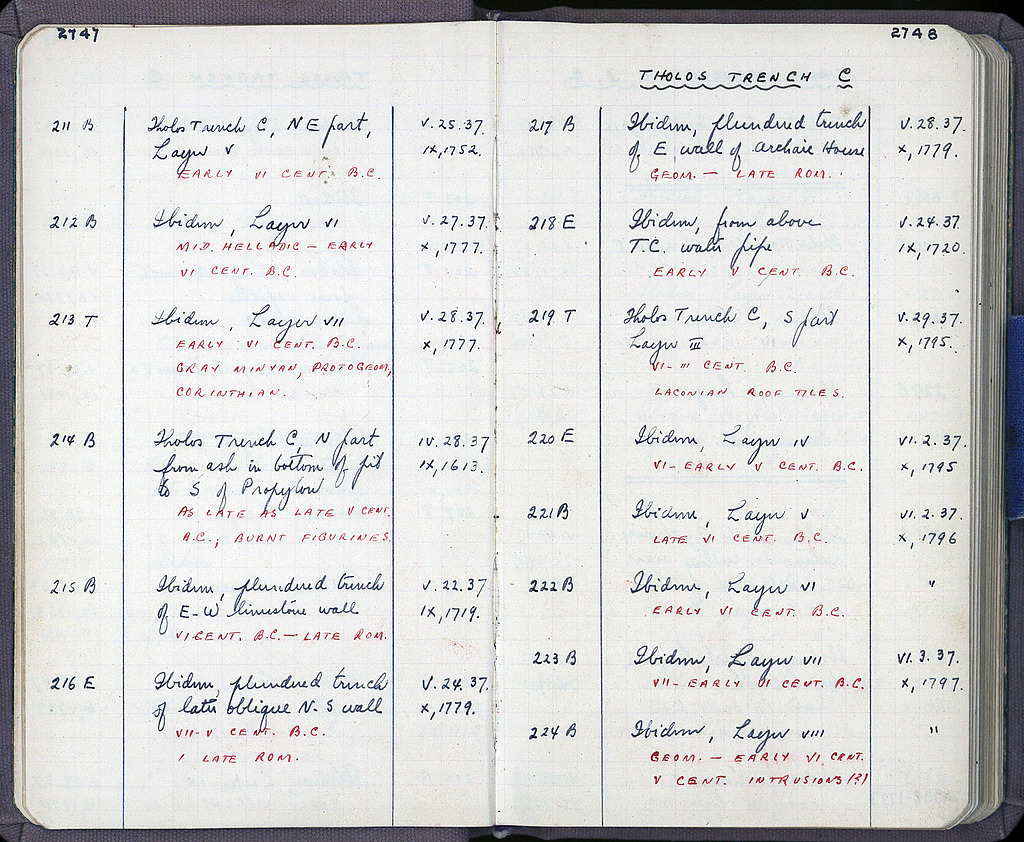 2747
211 B Tholos Trench C, NE part, V.25.37.
Layer V IX, 1752.
EARLY VI CENT. B.C.
212 B Ibidem, Layer VI V.27.37.
MID. HELLADIC – EARLY X, 1777.
VI CENT. B.C.
213 T Ibidem, Layer VII V.28.37.
EARLY VI CENT. B.C. X, 1777.
GRAY MINYAN, PROTOGEOM,
CORINTHIAN.
214 B Tholos Trench C, N part IV.28.37
from ash in bottom of pit IX, 1613.
to S of Propylon
AS LATE AS LATE V CENT.
B.C.; BURNT FIGURINES.
215 B Ibidem, plundered trench V.22.37
of E-W limestone wall IX, 1719.
VI CENT. B.C. – LATE ROM.
216 E Ibidem, plundered trench V.24.37.
of later oblique N-S wall X, 1779.
VII-V CENT. B.C.
1 LATE ROM.
2748
THOLOS TRENCH C
217 B Ibidem, plundered trench V.28.37.
of E wall of Archaic House X, 1779.
GEOM. – LATE ROM.
218 E Ibidem, from above V.24.37
T.C. water pipe IX, 1720.
EARLY V CENT. B.C.
219 T Tholos Trench C, S part V.29.37.
Layer III X, 1795.
VI-III CENT. B.C.
LACONIAN ROOF TILES.
220 E Ibidem, Layer IV VI.2.37.
VI-EARLY V CENT. B.C. X, 1795
221 B Ibidem, Layer V VI.2.37.
LATE VI CENT. B.C. X, 1796
222 B Ibidem, Layer VI "
EARLY VI CENT. B.C.
223 B Ibidem, Layer VII VI.3.37.
VII-EARLY VI CENT. B.C. X, 1797.
224 B Ibidem, Layer VIII "
GEOM. – EARLY VI CENT.
V CENT. INTRUSIONS (?)